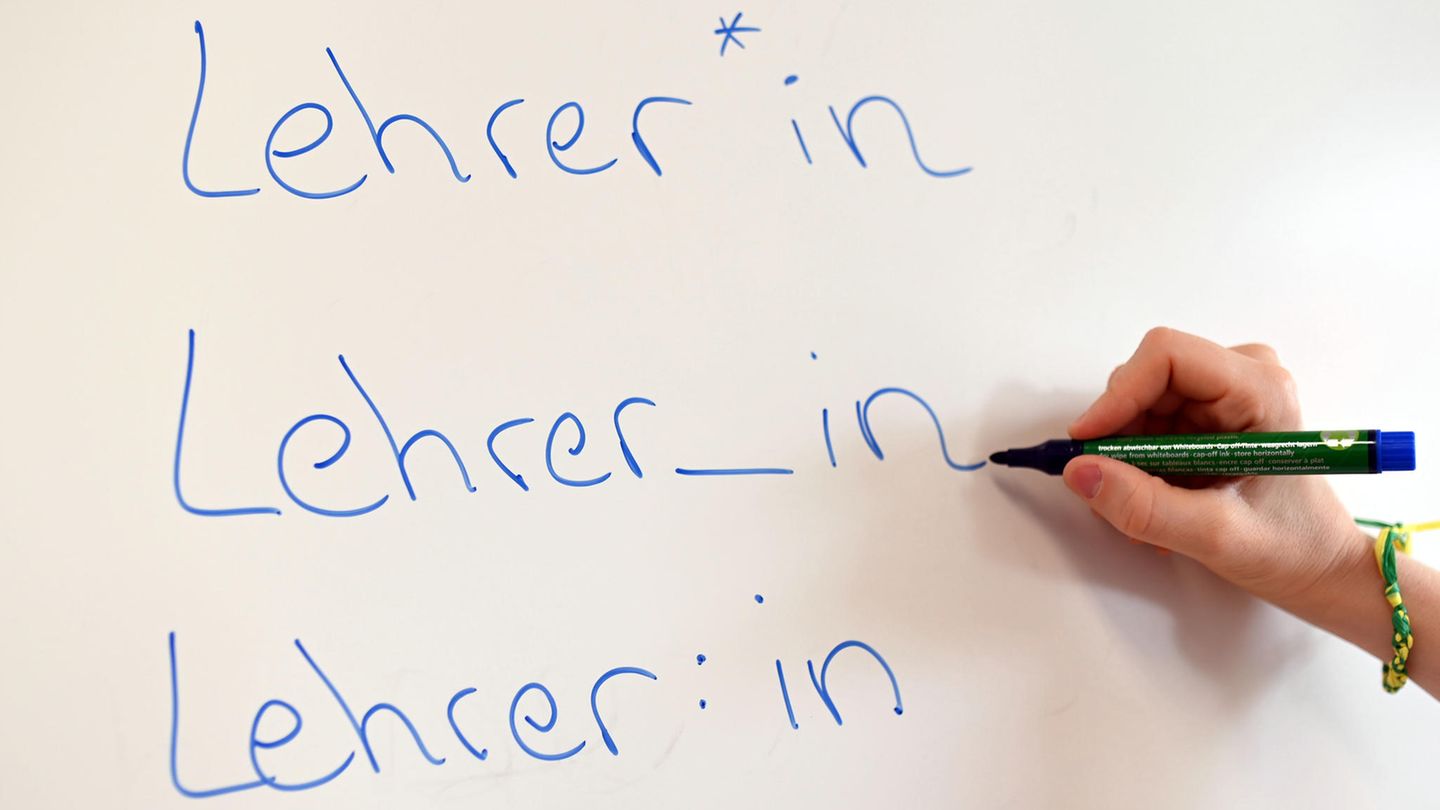 Lehrer*in
Lehrer_in
Lehrer:in
trocken abwischbar von Whiteboards · Cap off Tinte · waagrecht lagern
wipe from whiteboards · cap-off ink · store horizontally
sec sur tableaux blancs · encre cap off · conserver à plat
blancas · tinta cap off · guardar horizontalmente